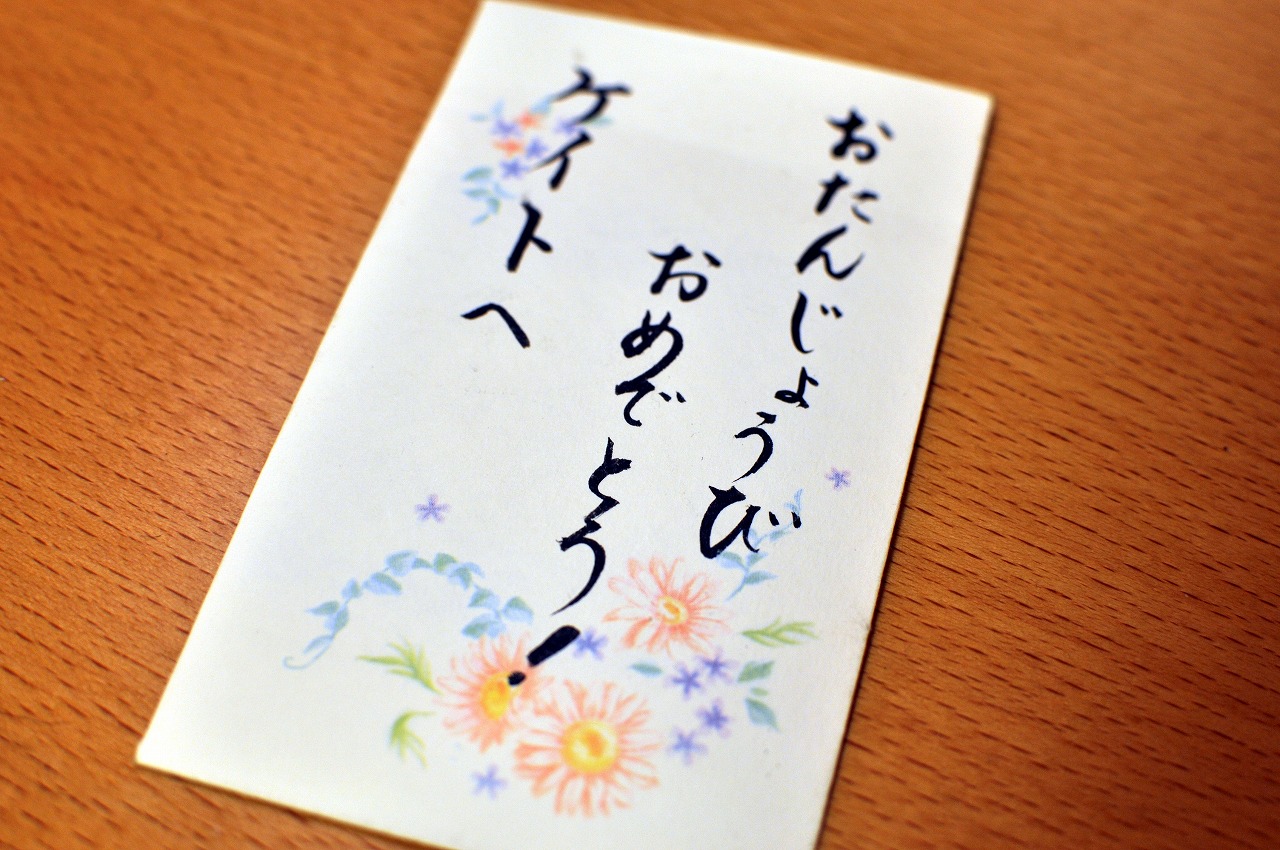 おたんじょうび
おめでとう!
ケイトへ